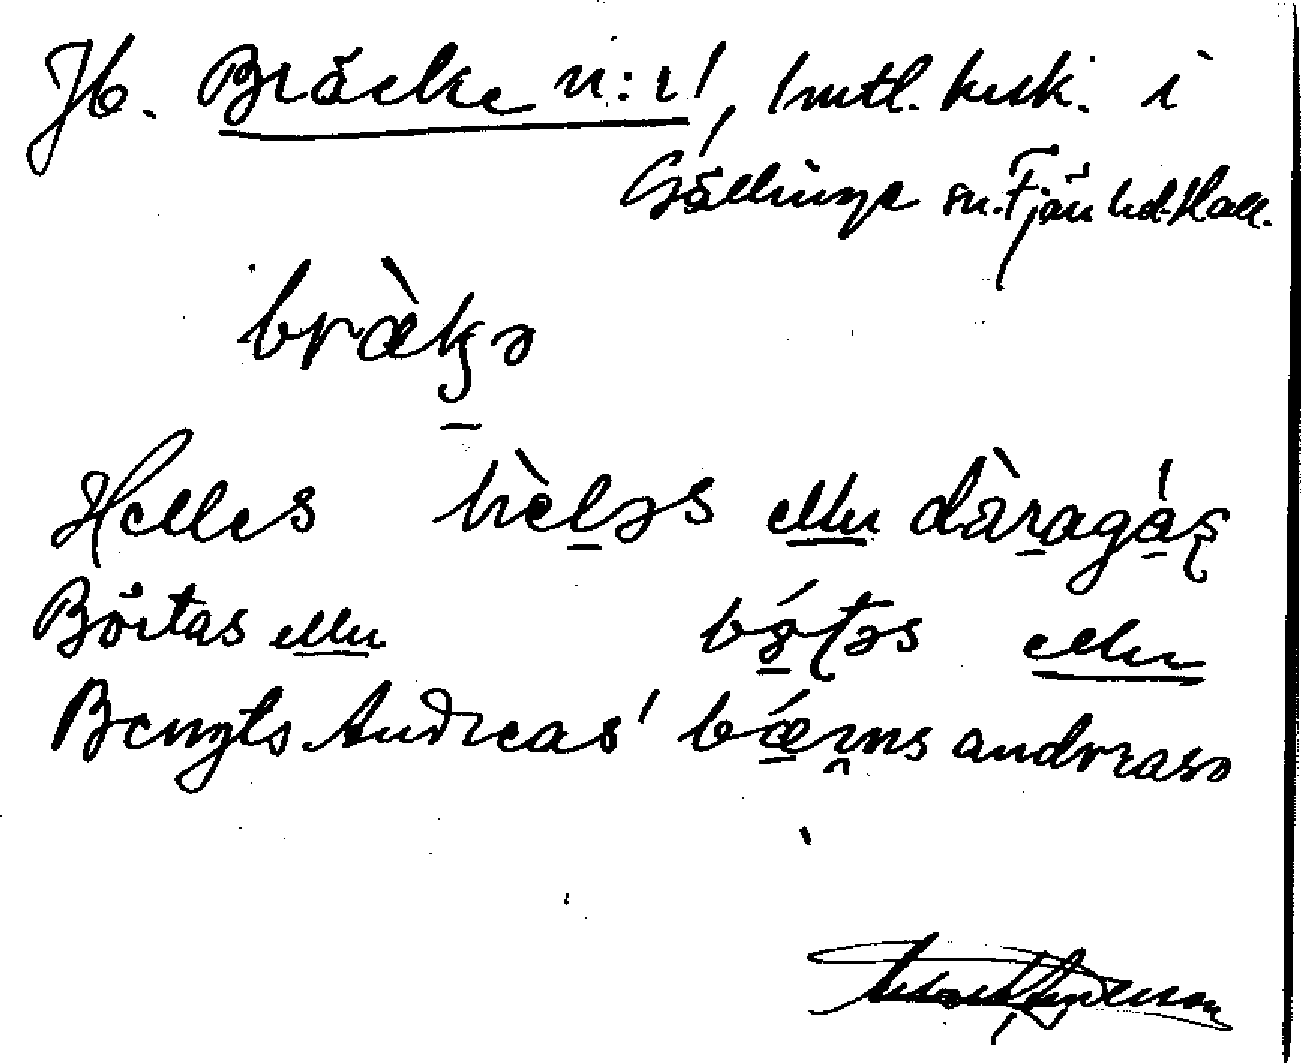 Jb. Bräcke n:r 1, muntl. besk. i
Gällinge sn. Fjäre hd. Hall.
bràkə
Helles hèləs eller dàragás
Börtas eller bǿtəs eller
Bengts Andreas' bǽŋns andreasə